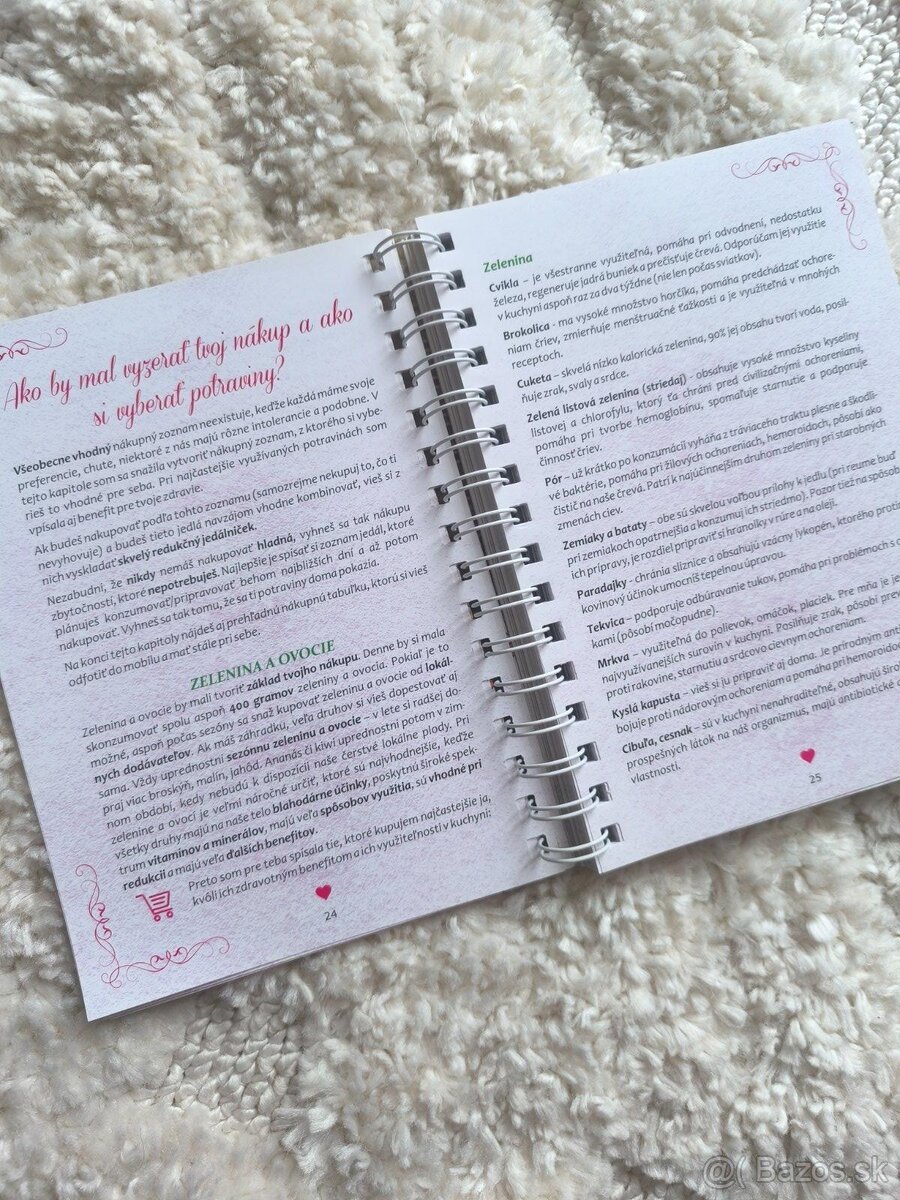 Ako by mal vyzerať tvoj nákup a ako
si vyberať potraviny?
Všeobecne vhodný nákupný zoznam neexistuje, keďže každá máme svoje
preferencie, chute, niektoré z nás majú rôzne intolerancie a podobne. V
tejto kapitole som sa snažila vytvoriť nákupný zoznam, z ktorého si vybe-
rieš to vhodné pre seba. Pri najčastejšie využívaných potravinách som
vpísala aj benefit pre tvoje zdravie.
Ak budeš nakupovať podľa tohto zoznamu (samozrejme nekupuj to, čo ti
nevyhovuje) a budeš tieto jedlá navzájom vhodne kombinovať, vieš si z
nich vyskladať skvelý redukčný jedálniček.
Nezabudni, že nikdy nemáš nakupovať hladná, vyhneš sa tak nákupu
zbytočností, ktoré nepotrebuješ. Najlepšie je spísať si zoznam jedál, ktoré
plánuješ konzumovať/pripravovať behom najbližších dní a až potom
nakupovať. Vyhneš sa tak tomu, že sa ti potraviny doma pokazia.
Na konci tejto kapitoly nájdeš aj prehľadnú nákupnú tabuľku, ktorú si vieš
odfotiť do mobilu a mať stále pri sebe.
ZELENINA A OVOCIE
Zelenina a ovocie by mali tvoriť základ tvojho nákupu. Denne by si mala
skonzumovať spolu aspoň 400 gramov zeleniny a ovocia. Pokiaľ je to
možné, aspoň počas sezóny sa snaž kupovať zeleninu a ovocie od lokál-
nych dodávateľov. Ak máš záhradku, veľa druhov si vieš dopestovať aj
sama. Vždy uprednostni sezónnu zeleninu a ovocie – v lete si radšej do-
praj viac broskýň, malín, jahôd. Ananás či kiwi uprednostni potom v zim-
nom období, kedy nebudú k dispozícii naše čerstvé lokálne plody. Pri
zelenine a ovocí je veľmi náročné určiť, ktoré sú najvhodnejšie, keďže
všetky druhy majú na naše telo blahodárne účinky, poskytnú široké spek-
trum vitamínov a minerálov, majú veľa spôsobov využitia, sú vhodné pri
redukcii a majú veľa ďalších benefitov.
Preto som pre teba spísala tie, ktoré kupujem najčastejšie ja,
kvôli ich zdravotným benefitom a ich využiteľnosti v kuchyni:
24
Zelenina
Cvikla – je všestranne využiteľná, pomáha pri odvodnení, nedostatku
železa, regeneruje jadrá buniek a prečisťuje črevá. Odporúčam jej využitie
v kuchyni aspoň raz za dva týždne (nie len počas sviatkov).
Brokolica - ma vysoké množstvo horčíka, pomáha predchádzať ochore-
niam čriev, zmierňuje menštruačné ťažkosti a je využiteľná v mnohých
receptoch.
Cuketa – skvelá nízko kalorická zelenina, 90% jej obsahu tvorí voda, posil-
ňuje zrak, svaly a srdce.
Zelená listová zelenina (striedaj) - obsahuje vysoké množstvo kyseliny
listovej a chlorofylu, ktorý ťa chráni pred civilizačnými ochoreniami,
pomáha pri tvorbe hemoglobínu, spomaľuje starnutie a podporuje
činnosť čriev.
Pór – už krátko po konzumácii vyháňa z tráviaceho traktu plesne a škodli-
vé baktérie, pomáha pri žilových ochoreniach, hemoroidoch, pôsobí ako
čistič na naše črevá. Patrí k najúčinnejším druhom zeleniny pri starobných
zmenách ciev.
Zemiaky a bataty – obe sú skvelou voľbou prílohy k jedlu (pri reume buď
pri zemiakoch opatrnejšia a konzumuj ich striedmo). Pozor tiež na spôsob
ich prípravy, je rozdiel pripraviť si hranolky v rúre a na oleji.
Paradajky - chránia sliznice a obsahujú vzácny lykopén, ktorého proti
kovinový účinok umocníš tepelnou úpravou.
Tekvica – podporuje odbúravanie tukov, pomáha pri problémoch s
kami (pôsobí močopudne).
Mrkva – využiteľná do polievok, omáčok, placiek. Pre mňa je je
najvyužívanejších surovín v kuchyni. Posilňuje zrak, pôsobí prev
proti rakovine, starnutiu a srdcovo cievnym ochoreniam.
Kyslá kapusta – vieš si ju pripraviť aj doma. Je prírodným anti
bojuje proti nádorovým ochoreniam a pomáha pri hemoroido
Cibuľa, cesnak – sú v kuchyni nenahraditeľné, obsahujú širo
prospešných látok na náš organizmus, majú antibiotické a
vlastnosti.
25
@( Bazos.sk